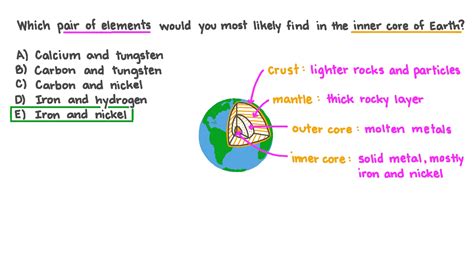 Which pair of elements would you most likely find in the inner core of Earth?
A) Calcium and tungsten
B) Carbon and tungsten
C) Carbon and nickel
D) Iron and hydrogen
E) Iron and nickel
crust: lighter rocks and particles
mantle: thick rocky layer
outer core: molten metals
inner core: solid metal, mostly
iron and nickel